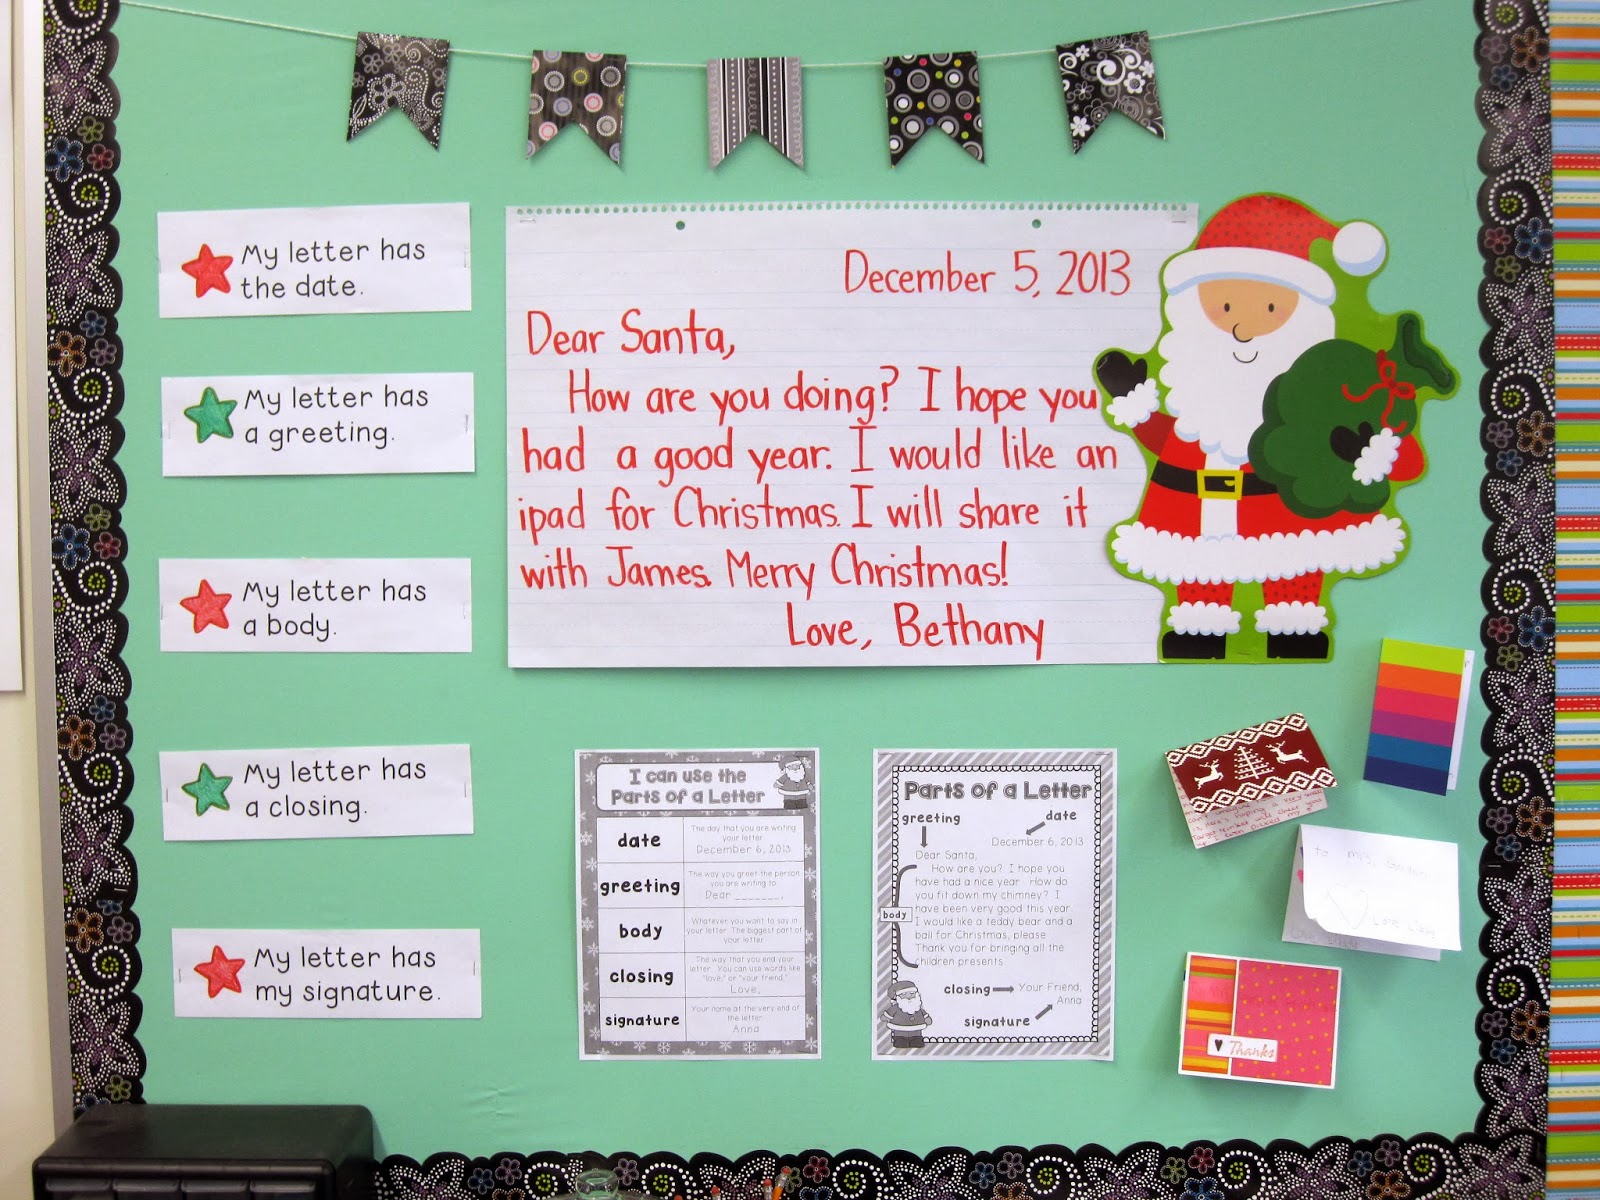 My letter has
the date.
My letter has
a greeting.
My letter has
a body.
My letter has
a closing.
My letter has
my signature.
December 5, 2013
Dear Santa,
How are you doing? I hope you
had a good year. I would like an
ipad for Christmas. I will share it
with James. Merry Christmas!
Love, Bethany
I can use the
Parts of a Letter
date
The day that you are writing
your letter
December 6, 2013
greeting
The way you greet the person
you are writing to.
Dear _______,
body
Whatever you want to say in
your letter. The biggest part of
your letter
closing
The way that you end your
letter. You can use words like
"love," or "your friend,"
Love,
signature
Your name at the very end of
the letter
Anna
Parts of a Letter
greeting
date
December 6, 2013
Dear Santa,
How are you? I hope you
have had a nice year. How do
you fit down my chimney? I
have been very good this year.
I would like a teddy bear and a
ball for Christmas, please.
Thank you for bringing all the
children presents.
body
closing
Your Friend,
Anna
signature
to Mrs.
Love
Thanks